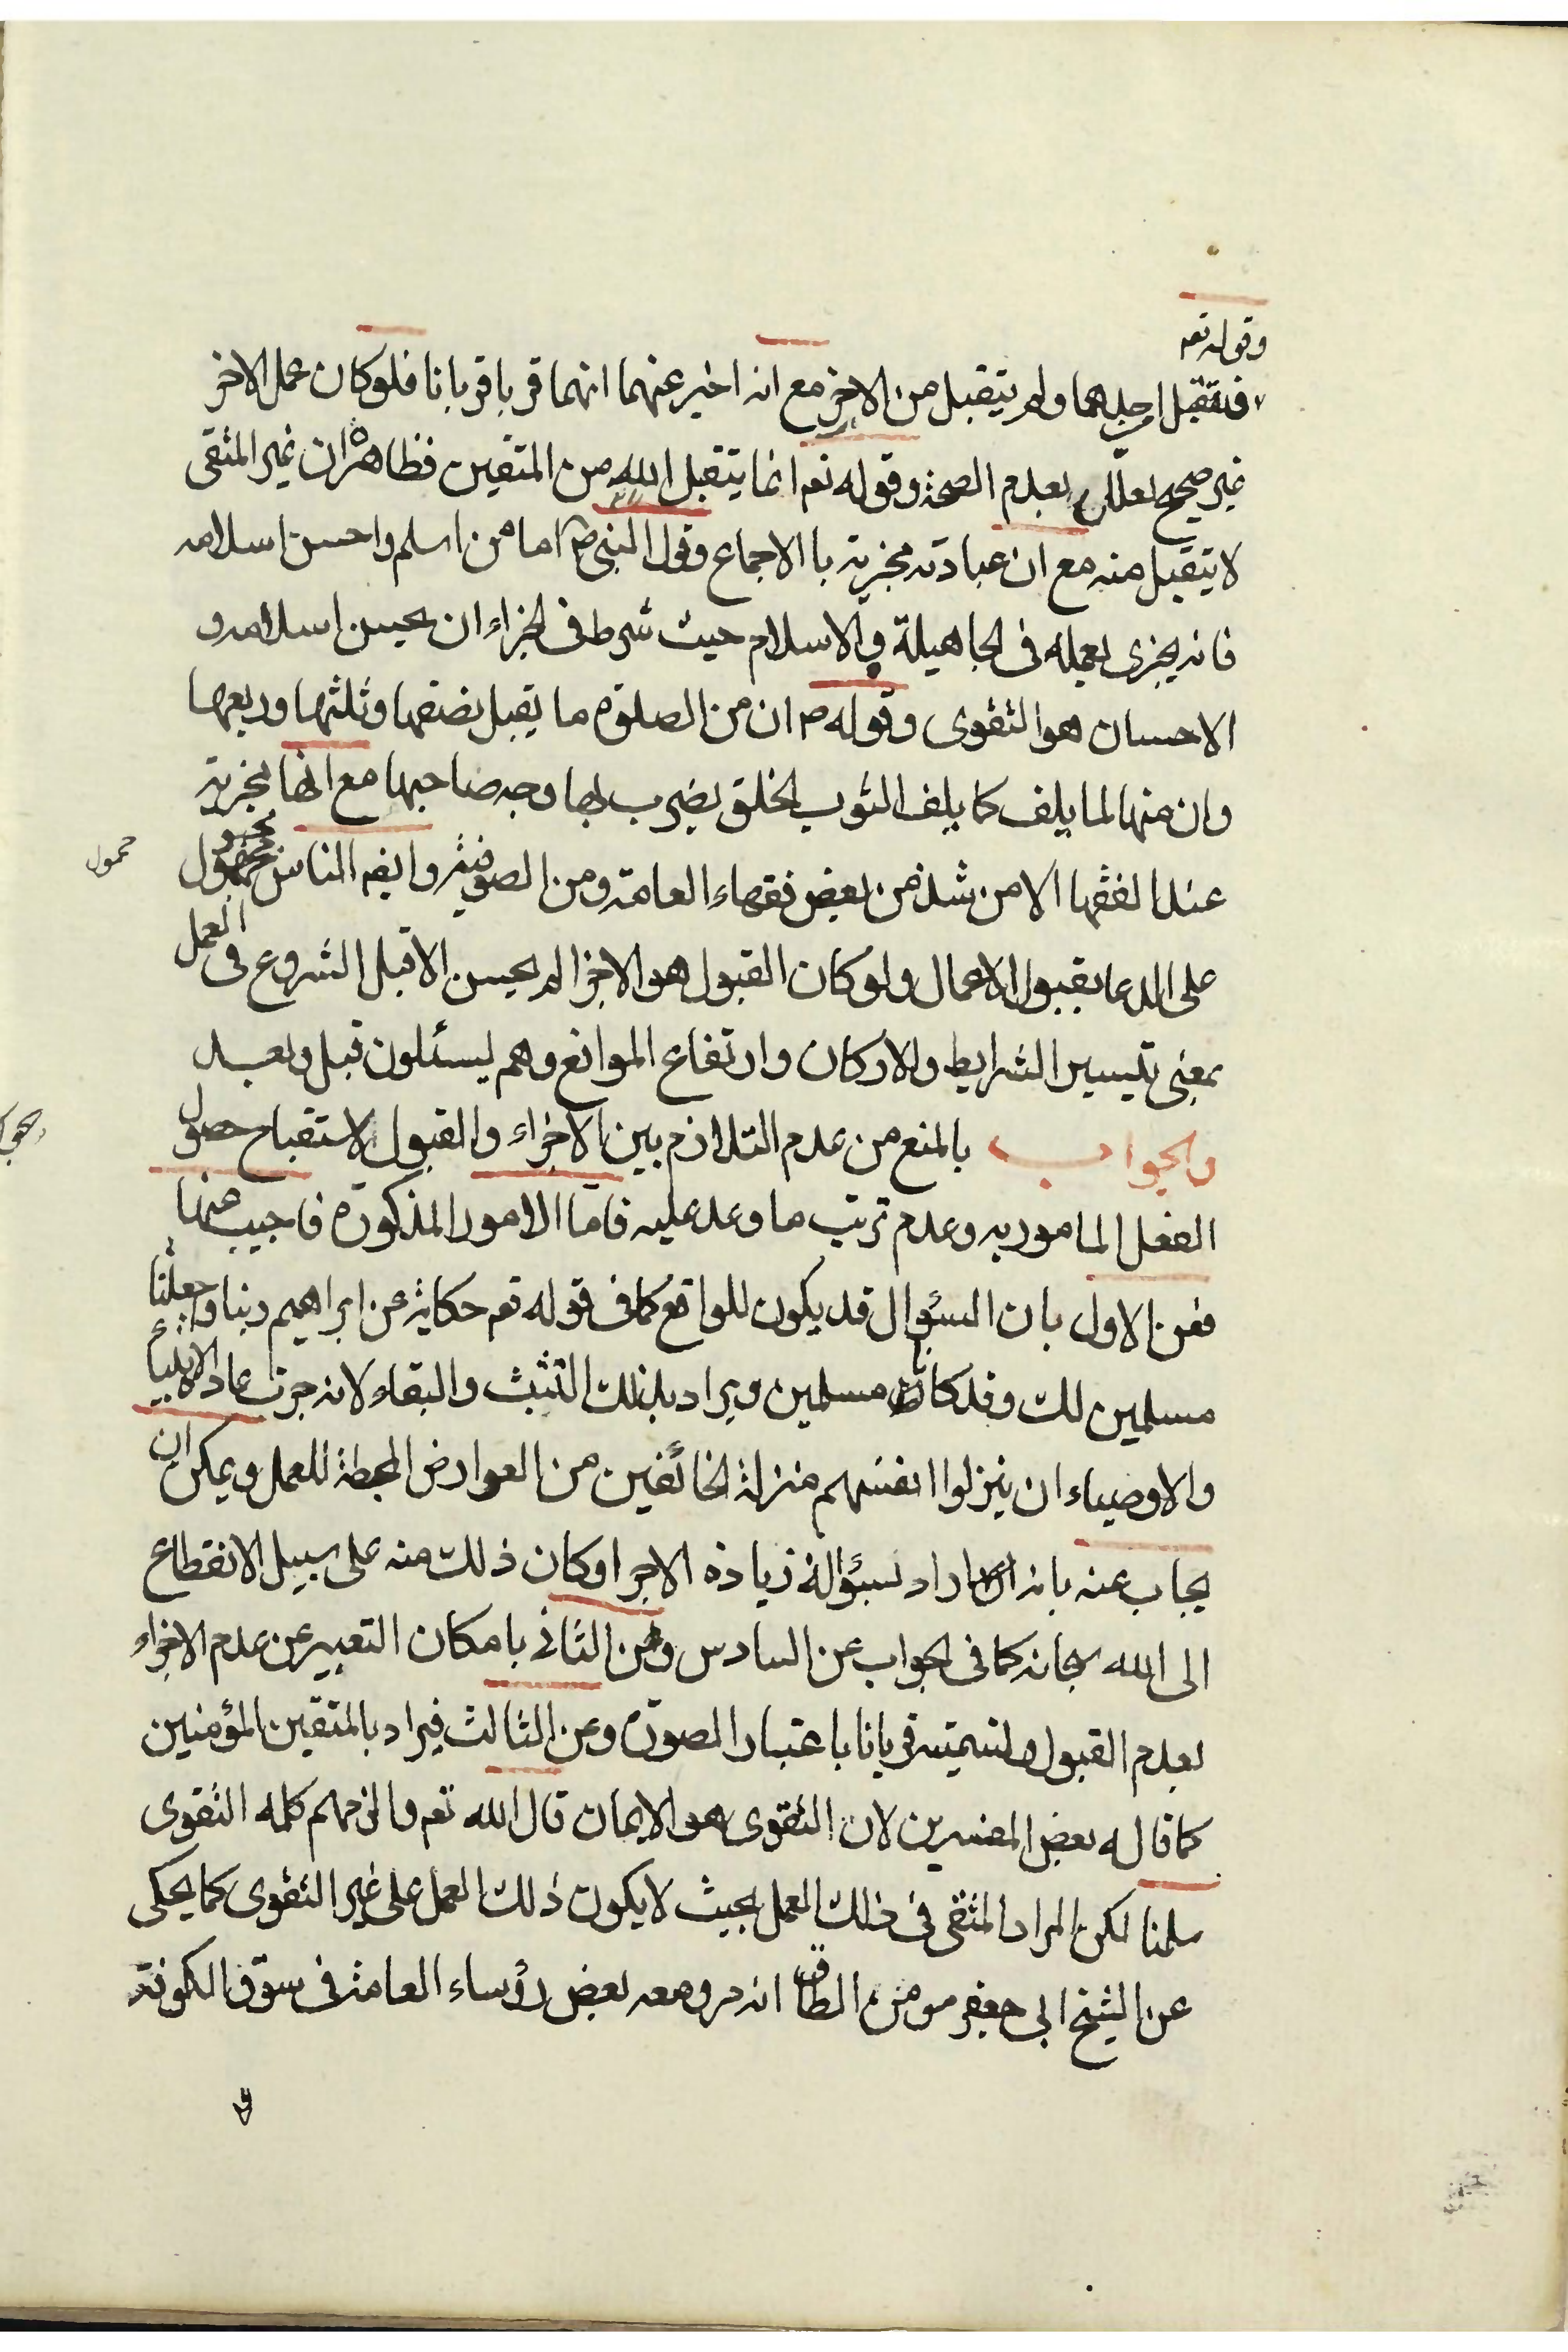 وقوله تعم
فتقبل من احدهما ولم يتقبل من الاخر مع انه اخبر عنهما انهما قربا قربانا فلو كان عمل الاخر
غير صحيح لعلل بعدم الصحة وقوله تعم انما يتقبل الله من المتقين فظاهره ان غير المتقى
لا يتقبل منه مع ان عبادته مجزية با الاجماع وقول النبي ص اما من اسلم واحسن اسلامه
فانه يجزى بعمله فى الجاهيلة و الاسلام حيث شرط فى الجزاء ان يحسن اسلامه و
الاحسان هو التقوى وقوله ص ان من الصلوة ما يقبل نصفها وثلثها وربعها
وان منها لما يلف كما يلف الثوب الخلق يضرب بها وجه صاحبها مع انها مجزية
عند الفقها الا من شذ من بعض فقهاء العامة ومن الصوفية وايضم الناس
محمول
على الدعا بقبول الاعمال ولو كان القبول هو الاجزا لم يحسن الا قبل الشروع فى العمل
بمعنى تيسير الشرايط والاركان وارتفاع الموانع وهم يسئلون قبل وبعد
والجواب بالمنع من عدم التلازم بين الاجزاء والقبول لاستقباح حصول
الفعل المامور به وعدم ترتب ما وعد عليه فاما الامور المذكورة فاجيب عنها
فعن الاول بان السؤال قد يكون للواقع كما فى قوله تعم حكاية عن ابراهيم ربنا واجعلنا
مسلمين لك وقد كانا مسلمين ويراد بذلك التثبت والبقاء لانه جرت عاد الانبياء
والاوصياء ان ينزلوا انفسهم منزلة الخائفين من العوارض المحبطة للعمل ويمكن ان
يجاب عنه بانه اراد بسؤاله زيادة الاجر او كان ذلك منه على سبيل الانقطاع
الى الله سبحانه كما فى الجواب عن السادس وعن الثانى بامكان التعبير عن عدم الاجزاء
بعدم القبول ولتسميته قربانا باعتبار الصورة وعن الثالث فيراد بالمتقين المؤمنين
كما قاله بعض المفسرين لان التقوى هو الايمان قال الله تعم والزمهم كلمه التقوى
سلمنا لكن المراد المتقى فى ذلك العمل بحيث لا يكون ذلك العمل على غير التقوى كما يحكى
عن الشيخ ابى جعفر مومن الطاق انه مر ومعه بعض رؤساء العامة فى سوق الكوفة